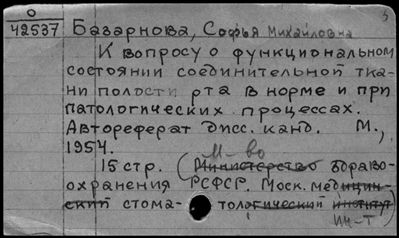 5
О
42537 Базарнова, Софья Михайловна
К вопросу о функциональном
состоянии соединительной тка-
ни полости рта в норме и при
патологических процессах.
Автореферат дисс. канд. М.,
1954.
М-во
15 стр. (Министерство здраво-
охранения РСФСР. Моск. медицин-
ский стома- тологический институт
ин-т)